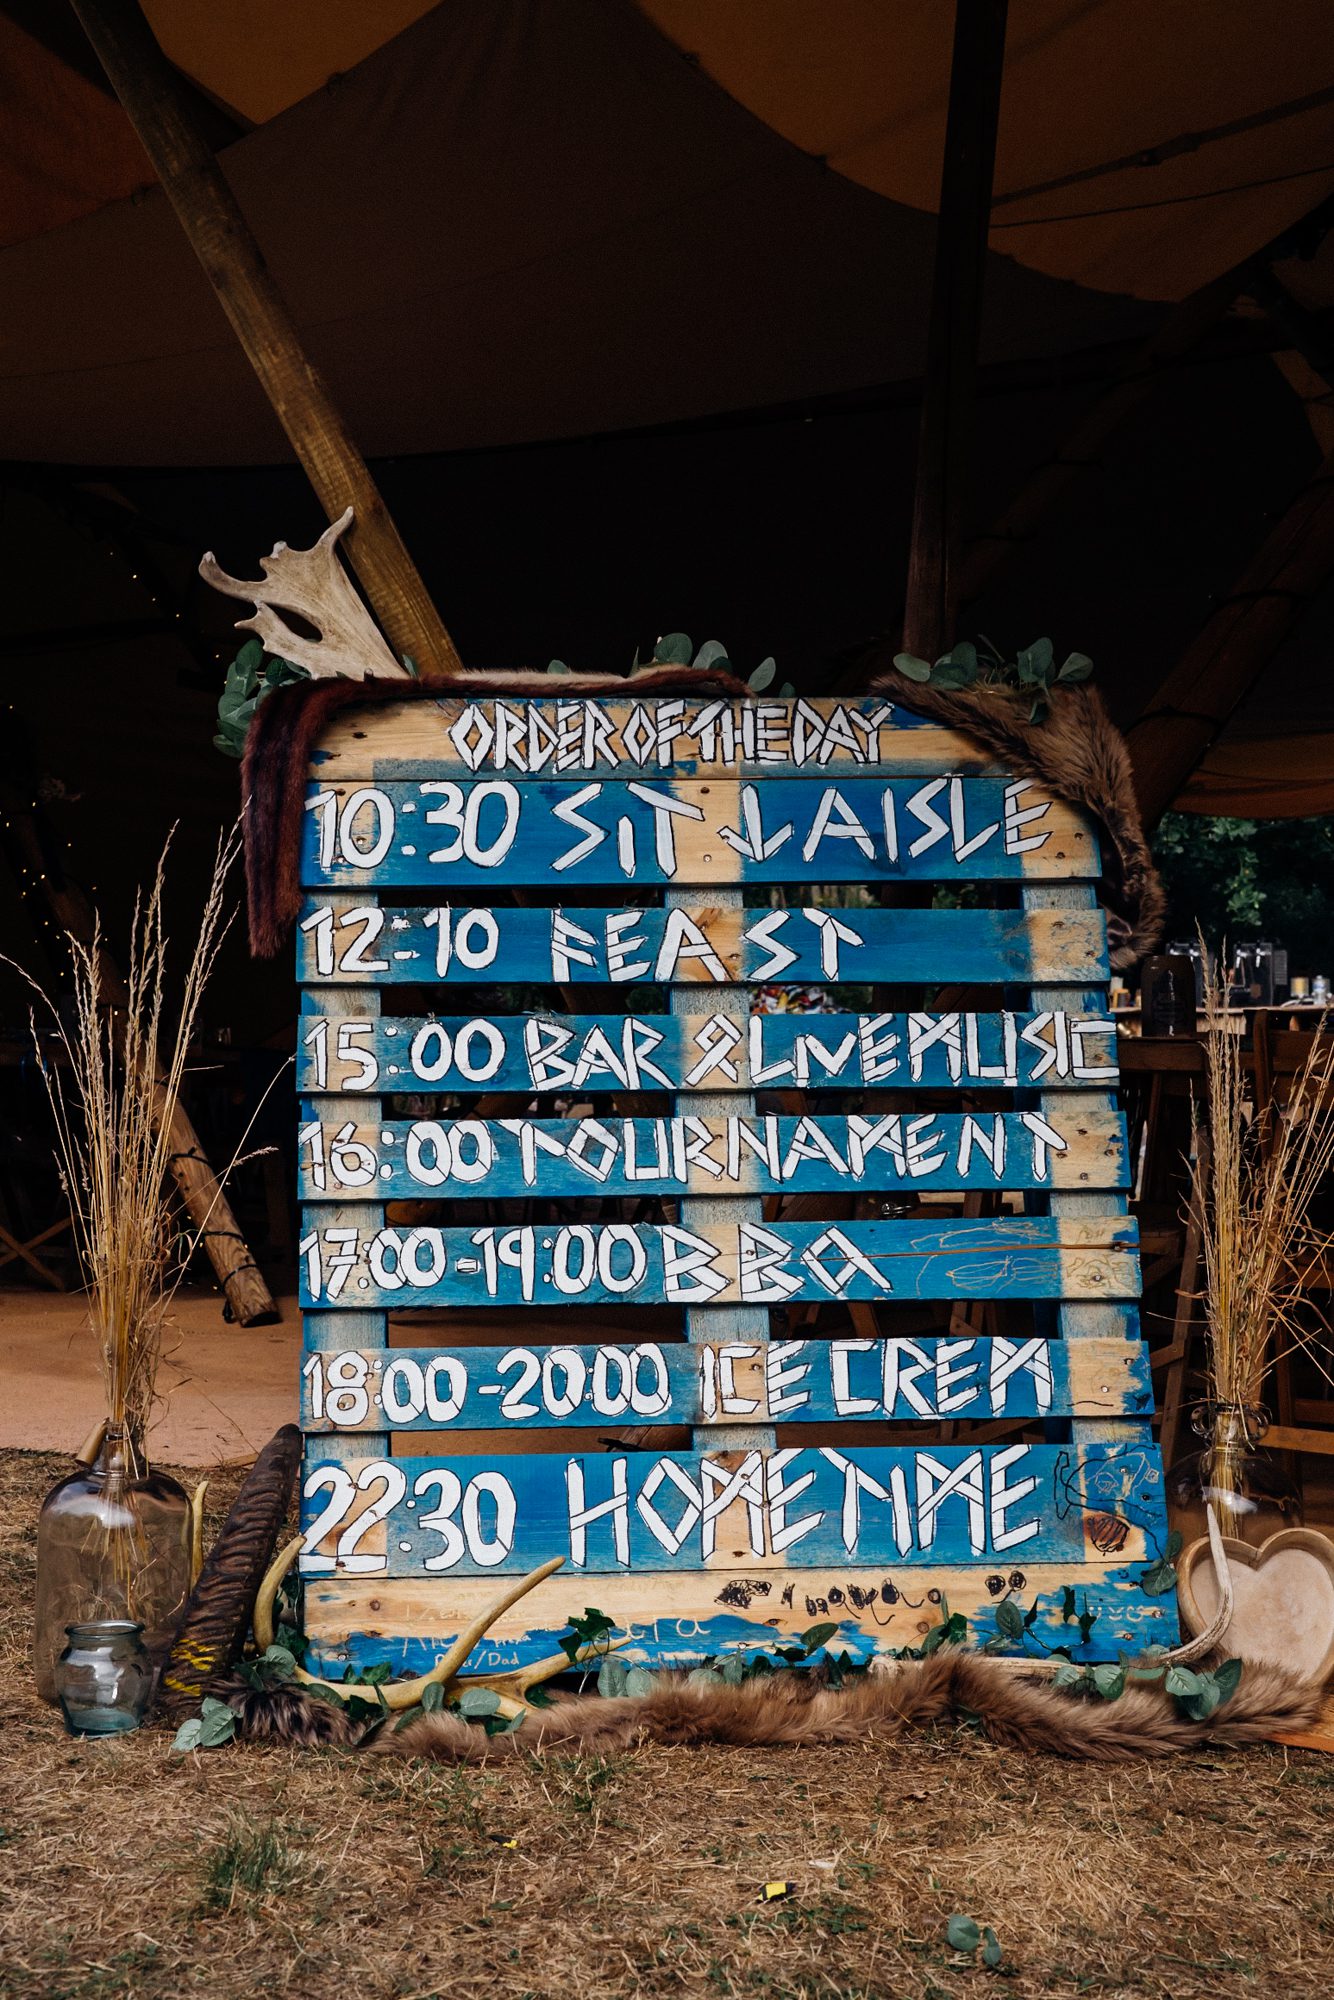 ORDER OF THE DAY
10:30 SIT ↓ AISLE
12:10 FEAST
15:00 BAR & LIVE MUSIC
16:00 TOURNAMENT
17:00-19:00 BBQ
18:00-20:00 ICE CREM
22:30 HOME TIME
/Dad